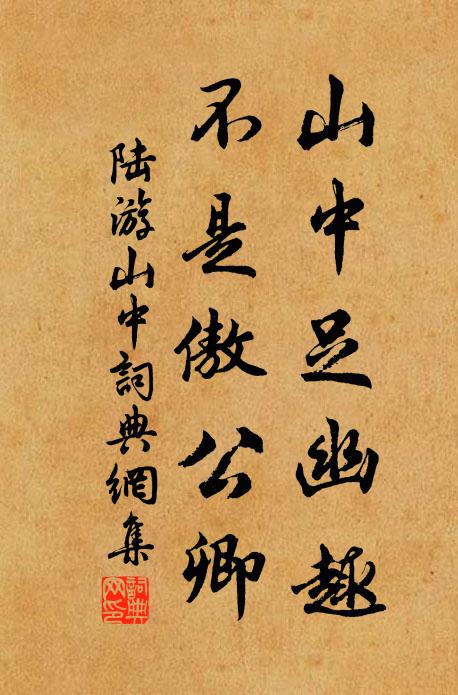 山中足幽趣
不是傲公卿
陆游山中詞典網集
詞典网印